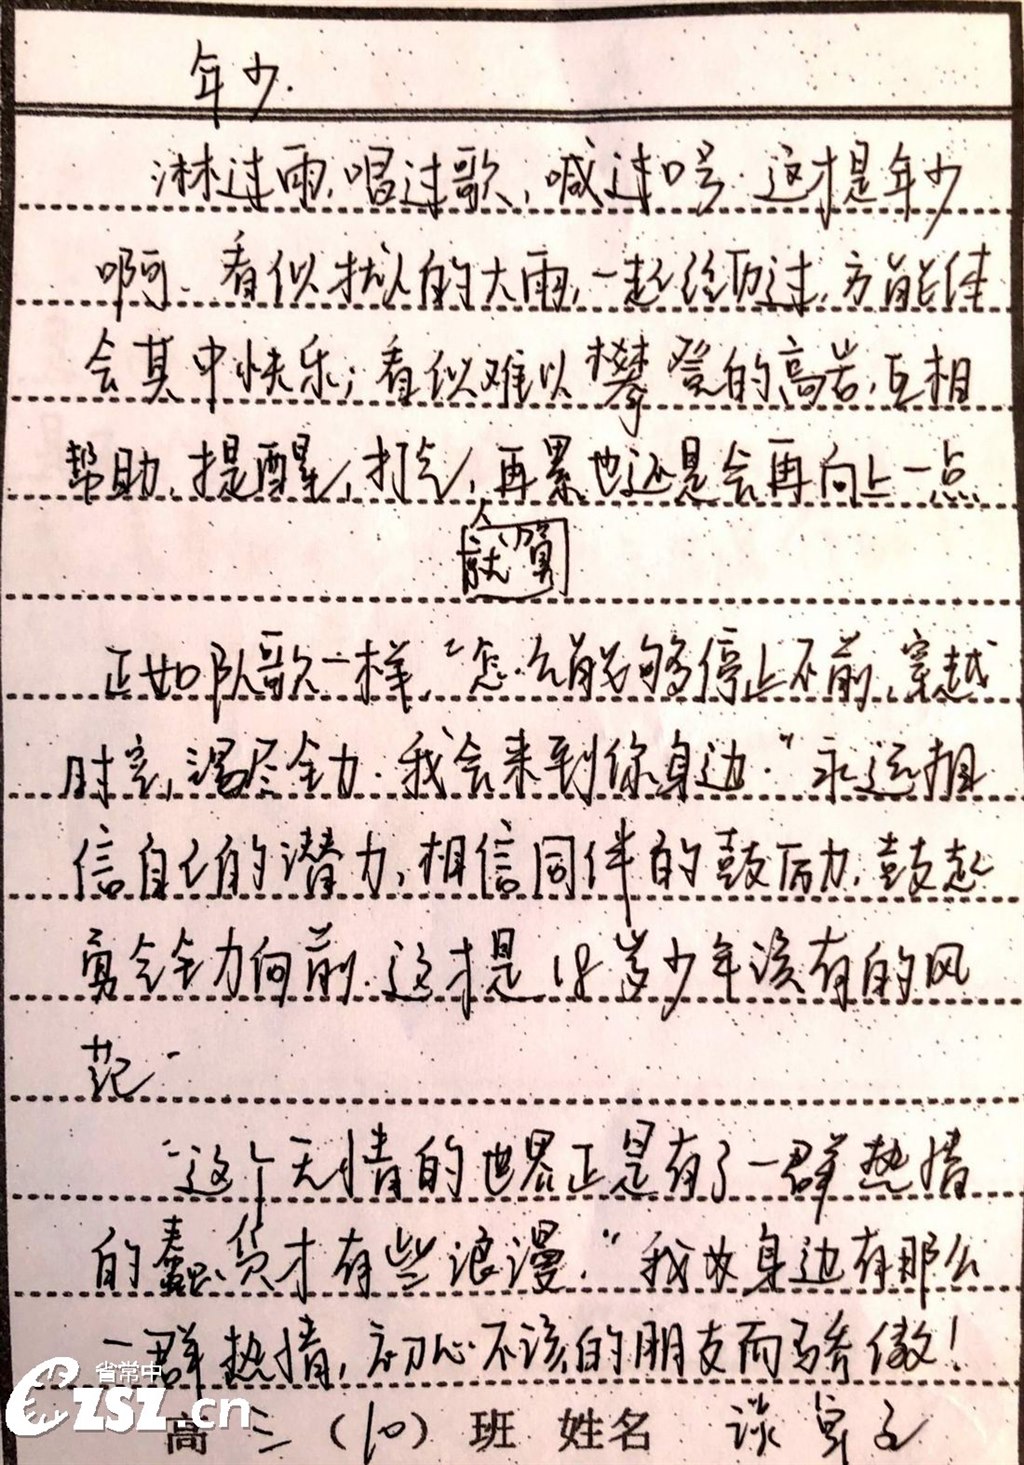 年少.
淋过雨,唱过歌,喊过口号.这才是年少
啊.看似扰人的大雨,一起经历过,方能体
会其中快乐;看似难以攀登的高岩,互相
帮助、提醒,打气,再累也还是会再向上一点
就算
正如队歌一样,"怎么能够停止不前,穿越
时空,竭尽全力.我会来到你身边."永远相
信自己的潜力,相信同伴的鼓励力,鼓起
勇气全力向前.这才是18岁少年该有的风
范.
"这个无情的世界正是有了一群热情
的蠢货才有些浪漫."我故身边有那么
一群热情,初心不该的朋友而骄傲!
省常中
CZSZ.cn
高三(10)班 姓名 谈